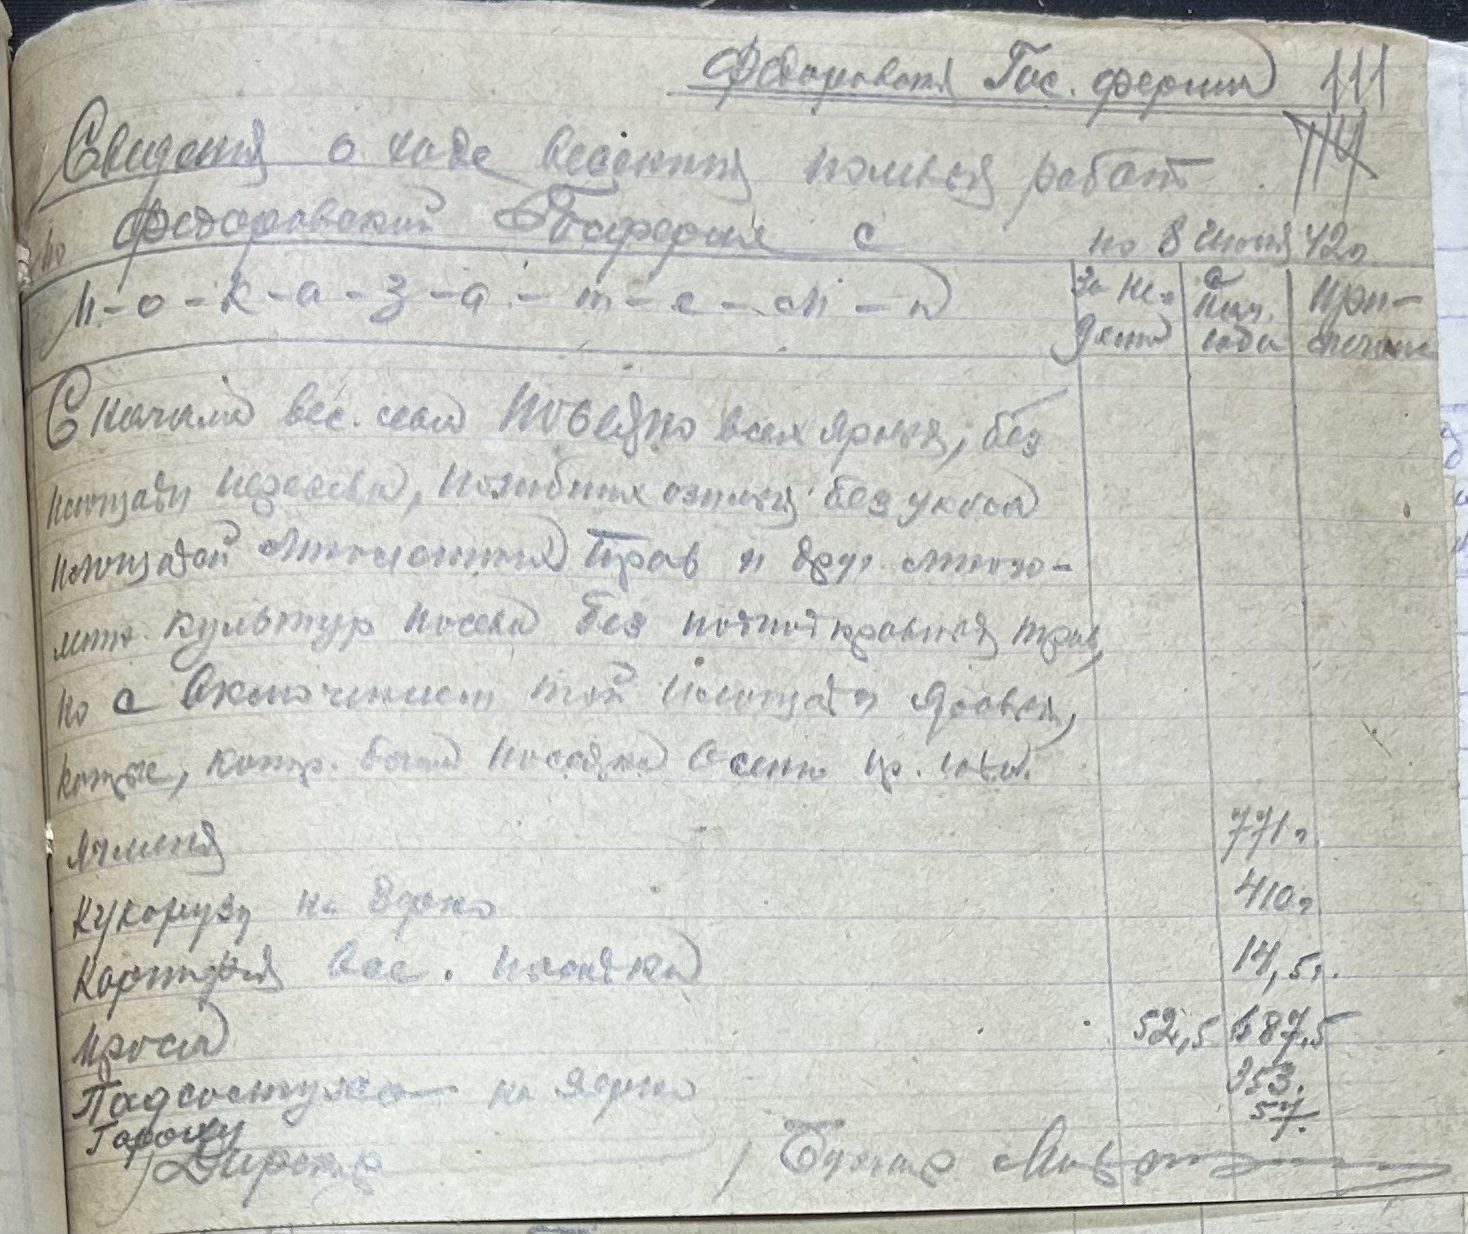 Федоровская Гос. ферма 111
114
Сведения о ходе ведения полевых работ
по Федоровской Госферме с по 8 июня 42г.
П-о-к-а-з-а-т-е-л-и
За неделю
С нач. года
Примечание
С начала вес. сева посеяно всех яровых, без
площади пересева, погибших озимых без укоса
площадей многолетних трав и друг. много-
летн. культур посева без подпокровных трав,
но с включением той площади яровых,
которые, котр. были посеяны осенью пр. года.
Ячменя 771г.
Кукорузы на зерно 410г
Картофеля вес. посадки 14,5г.
Проса 52,5 687,5
Подсолнуха на зерно 353.
Гороху 57.
Директор Бухгалтер